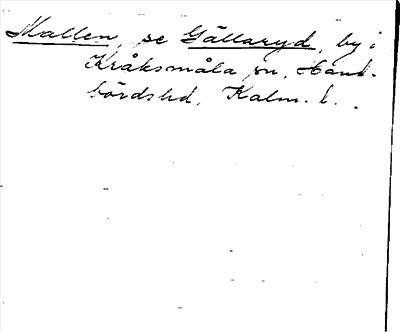 Mallen, se Gällaryd, by i
Kråksmåla sn, Hand-
bördshd, Kalm. l.